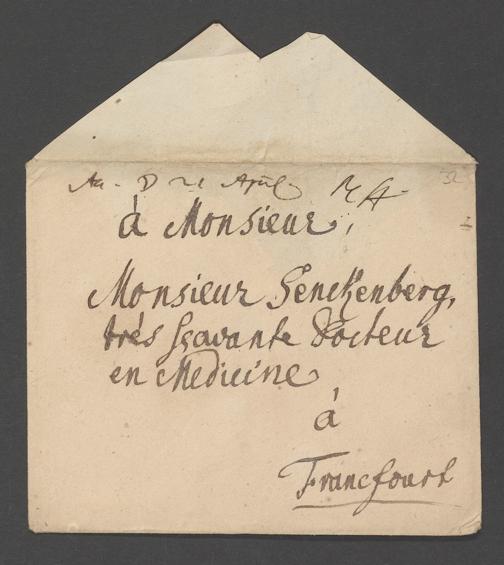 21 April
32
à Monsieur,
Monsieur Senckenberg,
trés sçavante Docteur
en Medicine
à
Francfourt